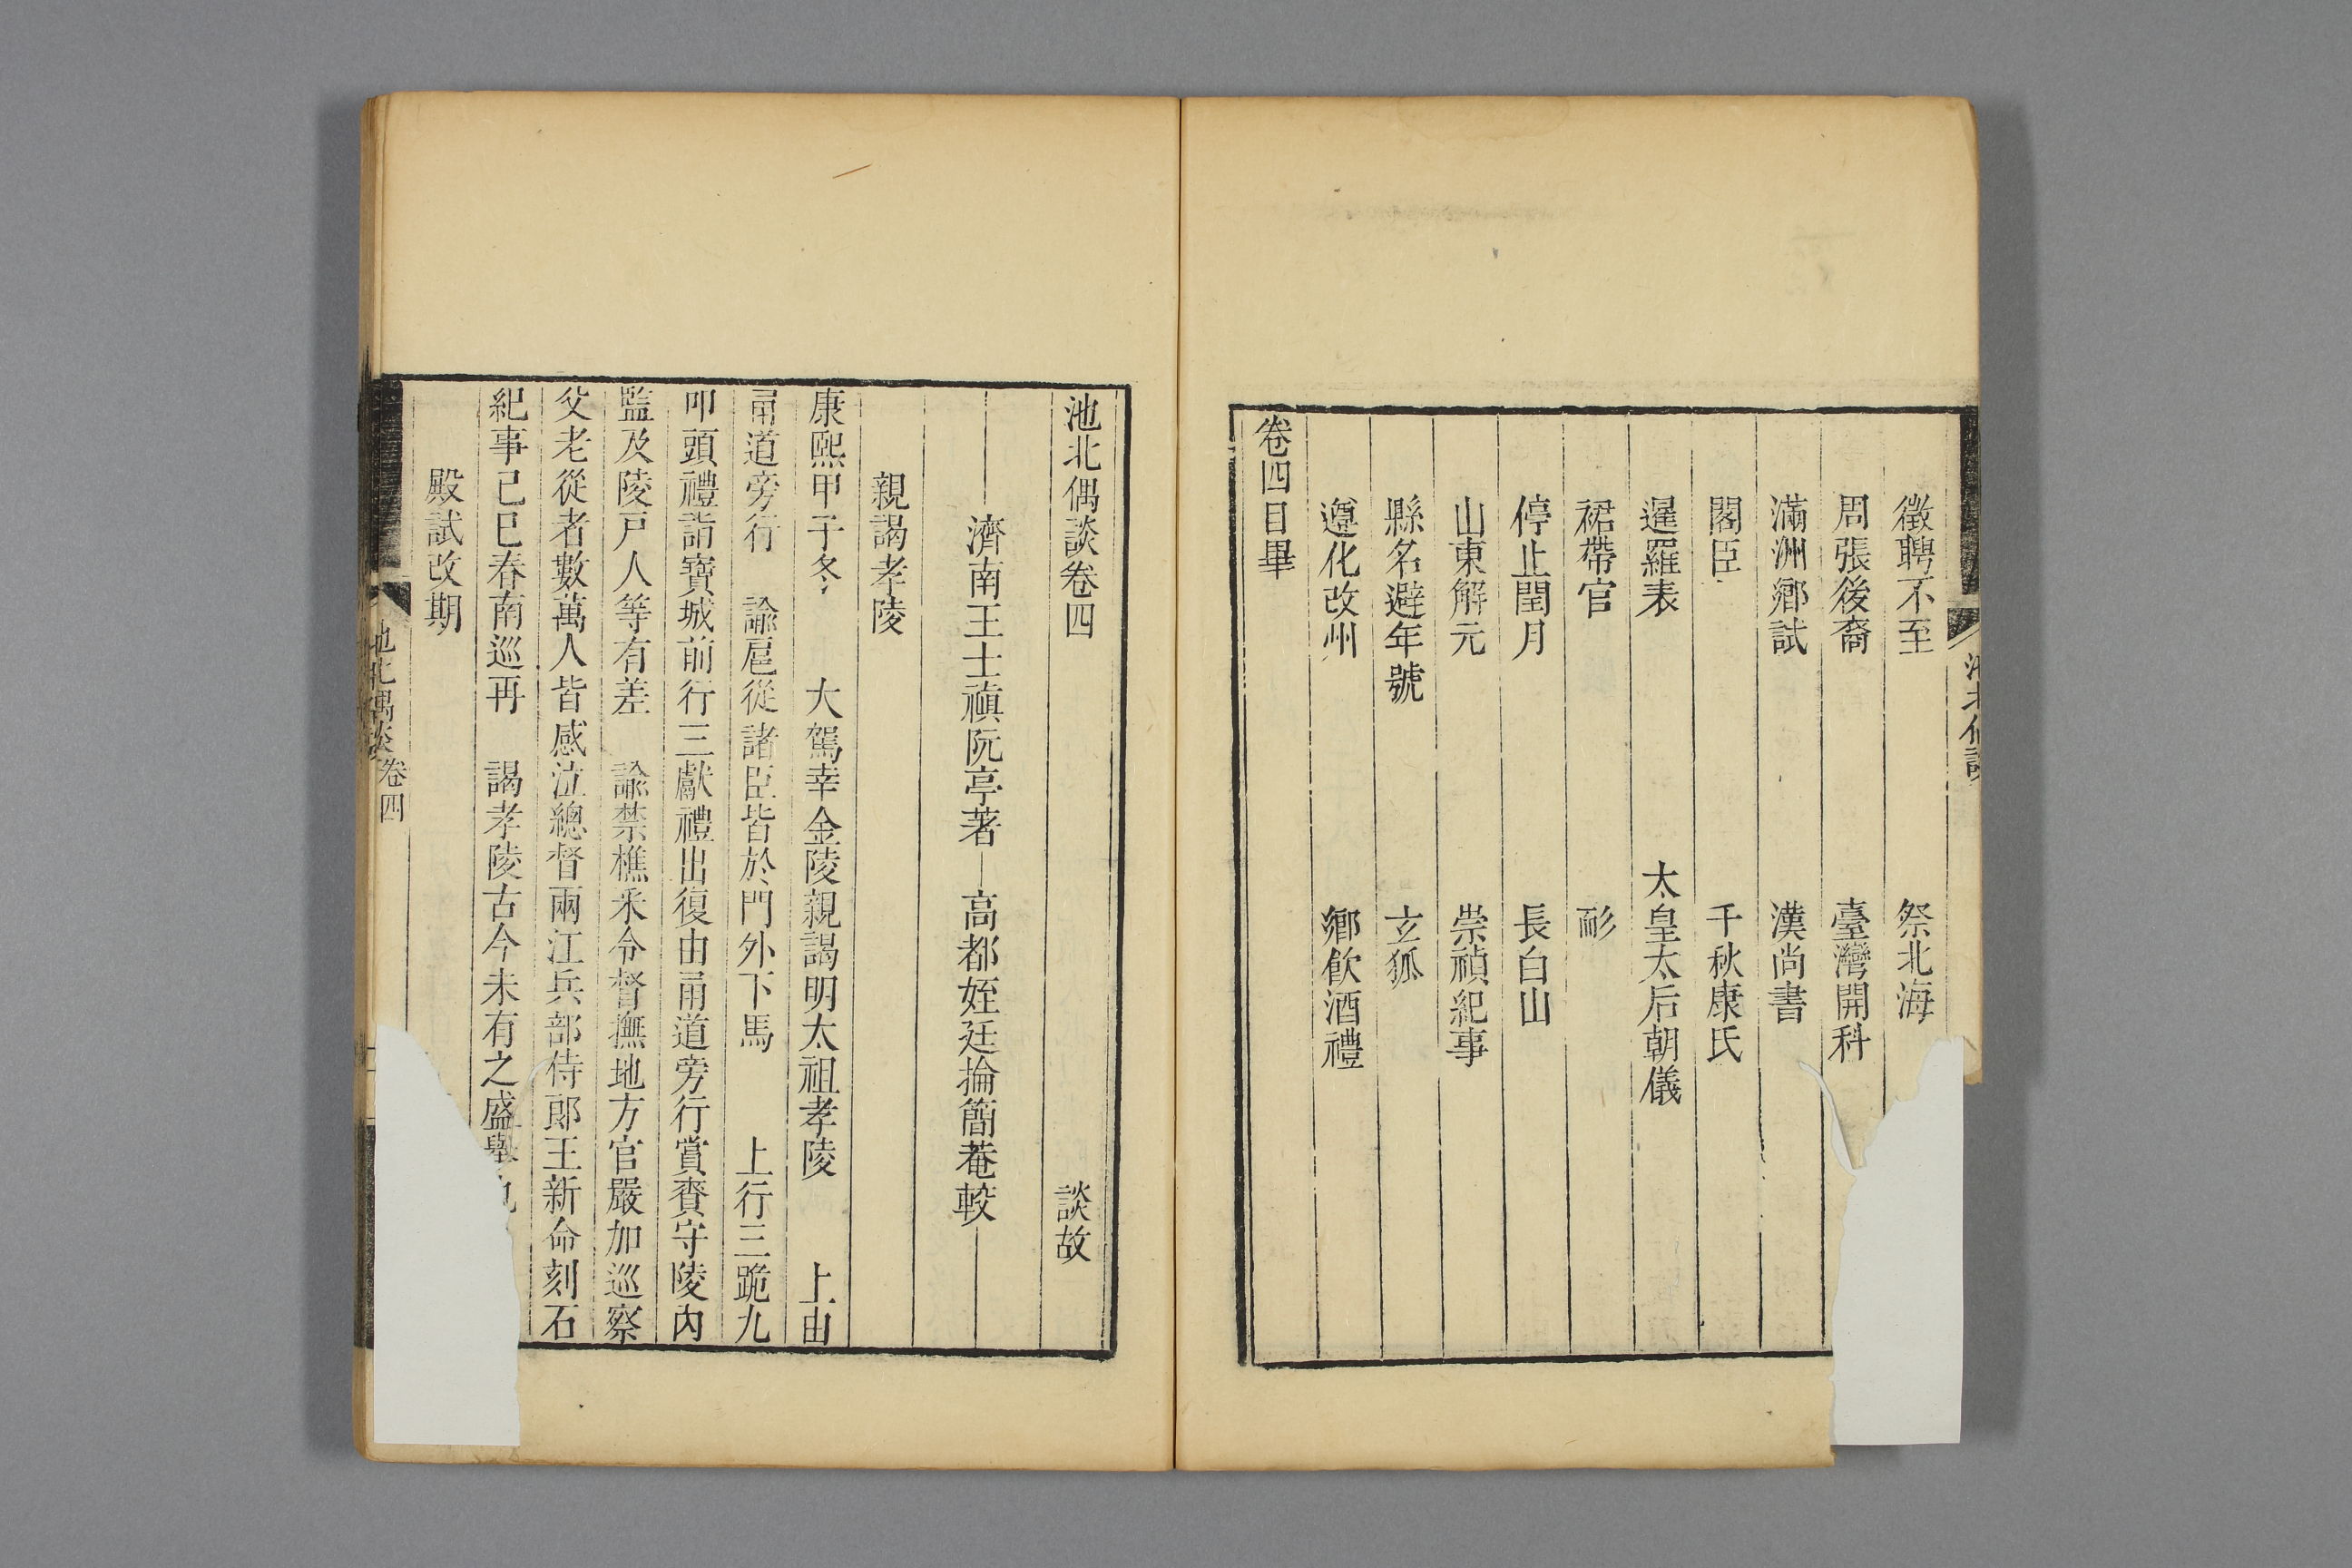 徵聘不至　祭北海
周張後裔　臺灣開科
滿洲鄉試　漢尚書
閣臣　千秋康氏
暹羅表　太皇太后朝儀
裙帶官　耏
停止閏月　長白山
山東解元　崇禎紀事
縣名避年號　玄狐
遵化改州　鄉飲酒禮
卷四目畢
池北偶談卷四　談故
濟南王士禛阮亭著　高都姪廷掄簡菴較
親謁孝陵
康熙甲子冬　大駕幸金陵親謁明太祖孝陵　上由
甬道旁行　諭扈從諸臣皆於門外下馬　上行三跪九
叩頭禮詣寶城前行三獻禮出復由甬道旁行賞賚守陵內
監及陵戸人等有差　諭禁樵釆令督撫地方官嚴加巡察
父老從者數萬人皆感泣總督兩江兵部侍郎王新命刻石
紀事己巳春南巡再　謁孝陵古今未有之盛舉也
殿試改期
池北偶談 卷四